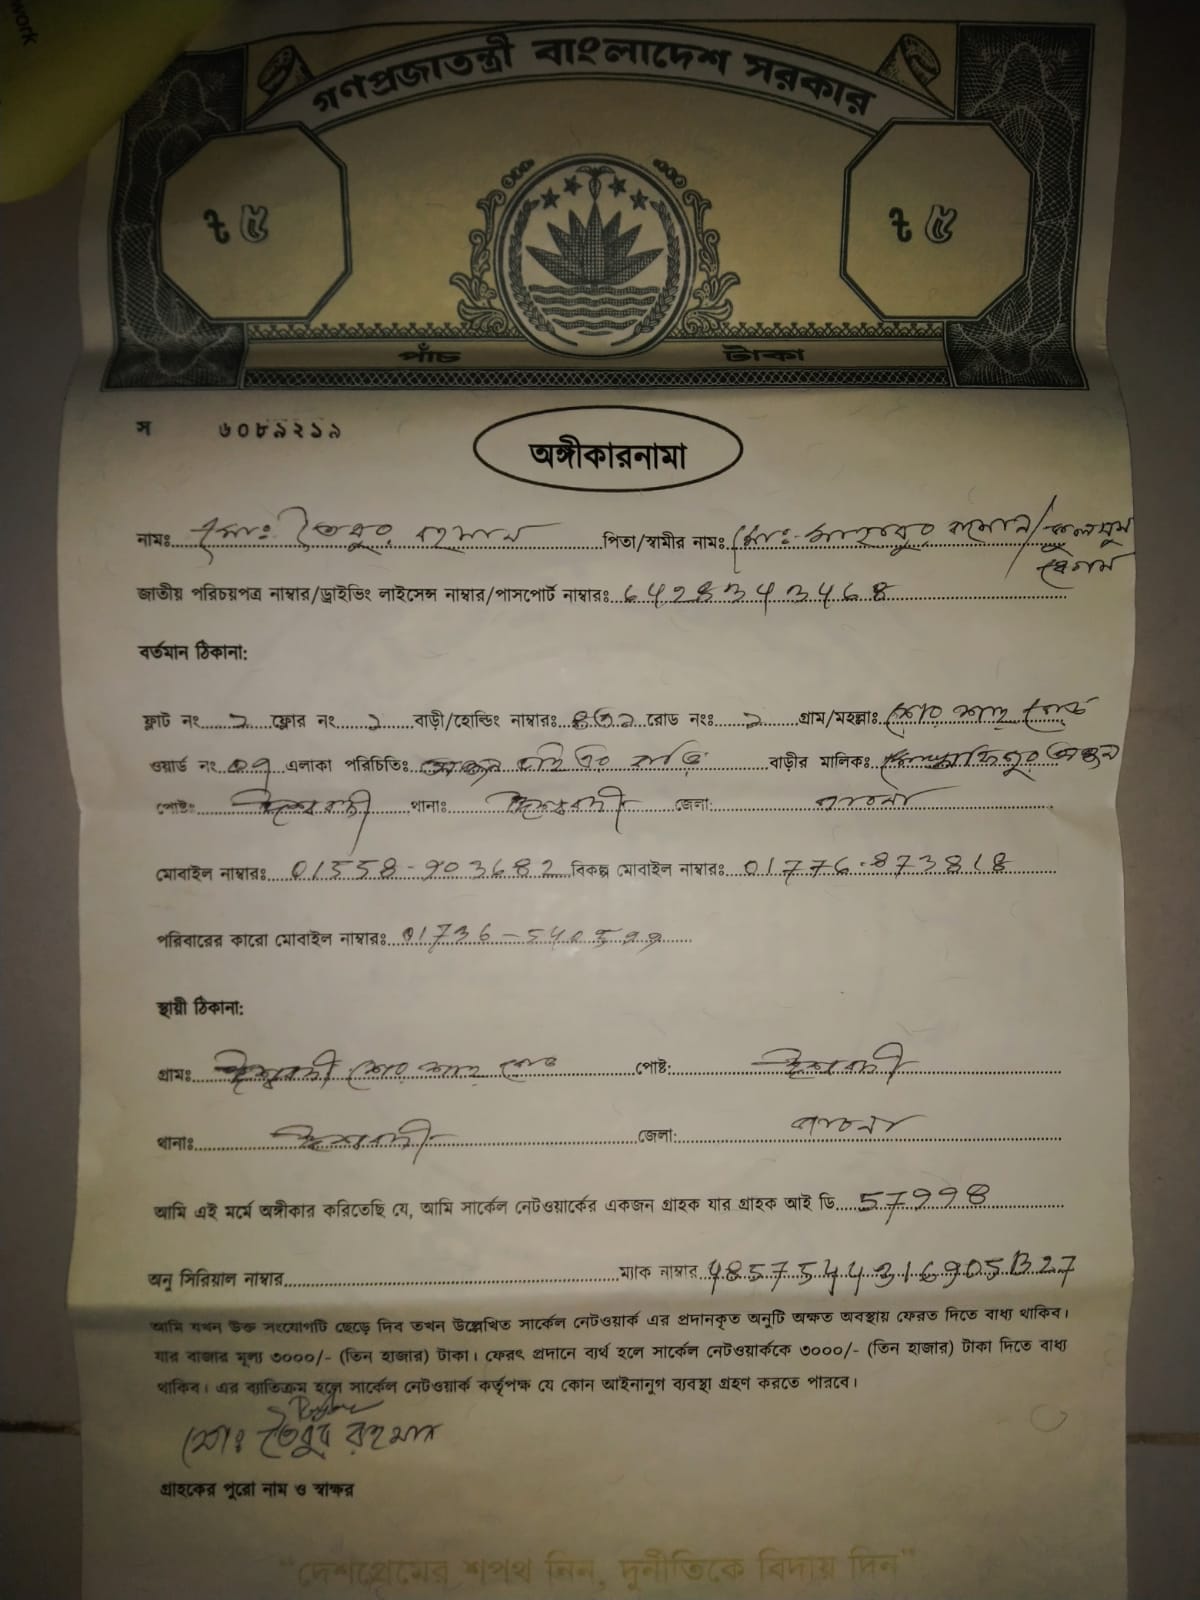 work
গণপ্রজাতন্ত্রী বাংলাদেশ সরকার
৳ ৫ ৳ ৫
পাঁচ টাকা
স ৬০৮৯২১৯
অঙ্গীকারনামা
নামঃ মোঃ তৈবুর রহমান পিতা/স্বামীর নামঃ মোঃ রহমান/
বেগম
জাতীয় পরিচয়পত্র নাম্বার/ড্রাইভিং লাইসেন্স নাম্বার/পাসপোর্ট নাম্বারঃ 6428343468
বর্তমান ঠিকানা:
ফ্লাট নং ১ ফ্লোর নং ১ বাড়ী/হোল্ডিং নাম্বারঃ রোড নংঃ ১ গ্রাম/মহল্লাঃ শের শাহ রোড
ওয়ার্ড নং ০৭ এলাকা পরিচিতিঃ বাড়ি বাড়ীর মালিকঃ
পোষ্টঃ ঈশ্বরদী থানাঃ ঈশ্বরদী জেলা: পাবনা
মোবাইল নাম্বারঃ 01558-903682 বিকল্প মোবাইল নাম্বারঃ 01776-873818
পরিবারের কারো মোবাইল নাম্বারঃ
স্থায়ী ঠিকানা:
গ্রামঃ ঈশ্বরদী শের শাহ রোড পোষ্ট: ঈশ্বরদী
থানাঃ ঈশ্বরদী জেলা: পাবনা
আমি এই মর্মে অঙ্গীকার করিতেছি যে, আমি সার্কেল নেটওয়ার্কের একজন গ্রাহক যার গ্রাহক আই ডি 57998
অনু সিরিয়াল নাম্বার ম্যাক নাম্বার 4857544316905B27
আমি যখন উক্ত সংযোগটি ছেড়ে দিব তখন উল্লেখিত সার্কেল নেটওয়ার্ক এর প্রদানকৃত অনুটি অক্ষত অবস্থায় ফেরত দিতে বাধ্য থাকিব।
যার বাজার মূল্য ৩০০০/- (তিন হাজার) টাকা। ফেরৎ প্রদানে ব্যর্থ হলে সার্কেল নেটওয়ার্ককে ৩০০০/- (তিন হাজার) টাকা দিতে বাধ্য
থাকিব। এর ব্যাতিক্রম হলে সার্কেল নেটওয়ার্ক কর্তৃপক্ষ যে কোন আইনানুগ ব্যবস্থা গ্রহণ করতে পারবে।
মোঃ তৈবুর রহমান
গ্রাহকের পুরো নাম ও স্বাক্ষর
“দেশপ্রেমের শপথ নিন, দুর্নীতিকে বিদায় দিন”